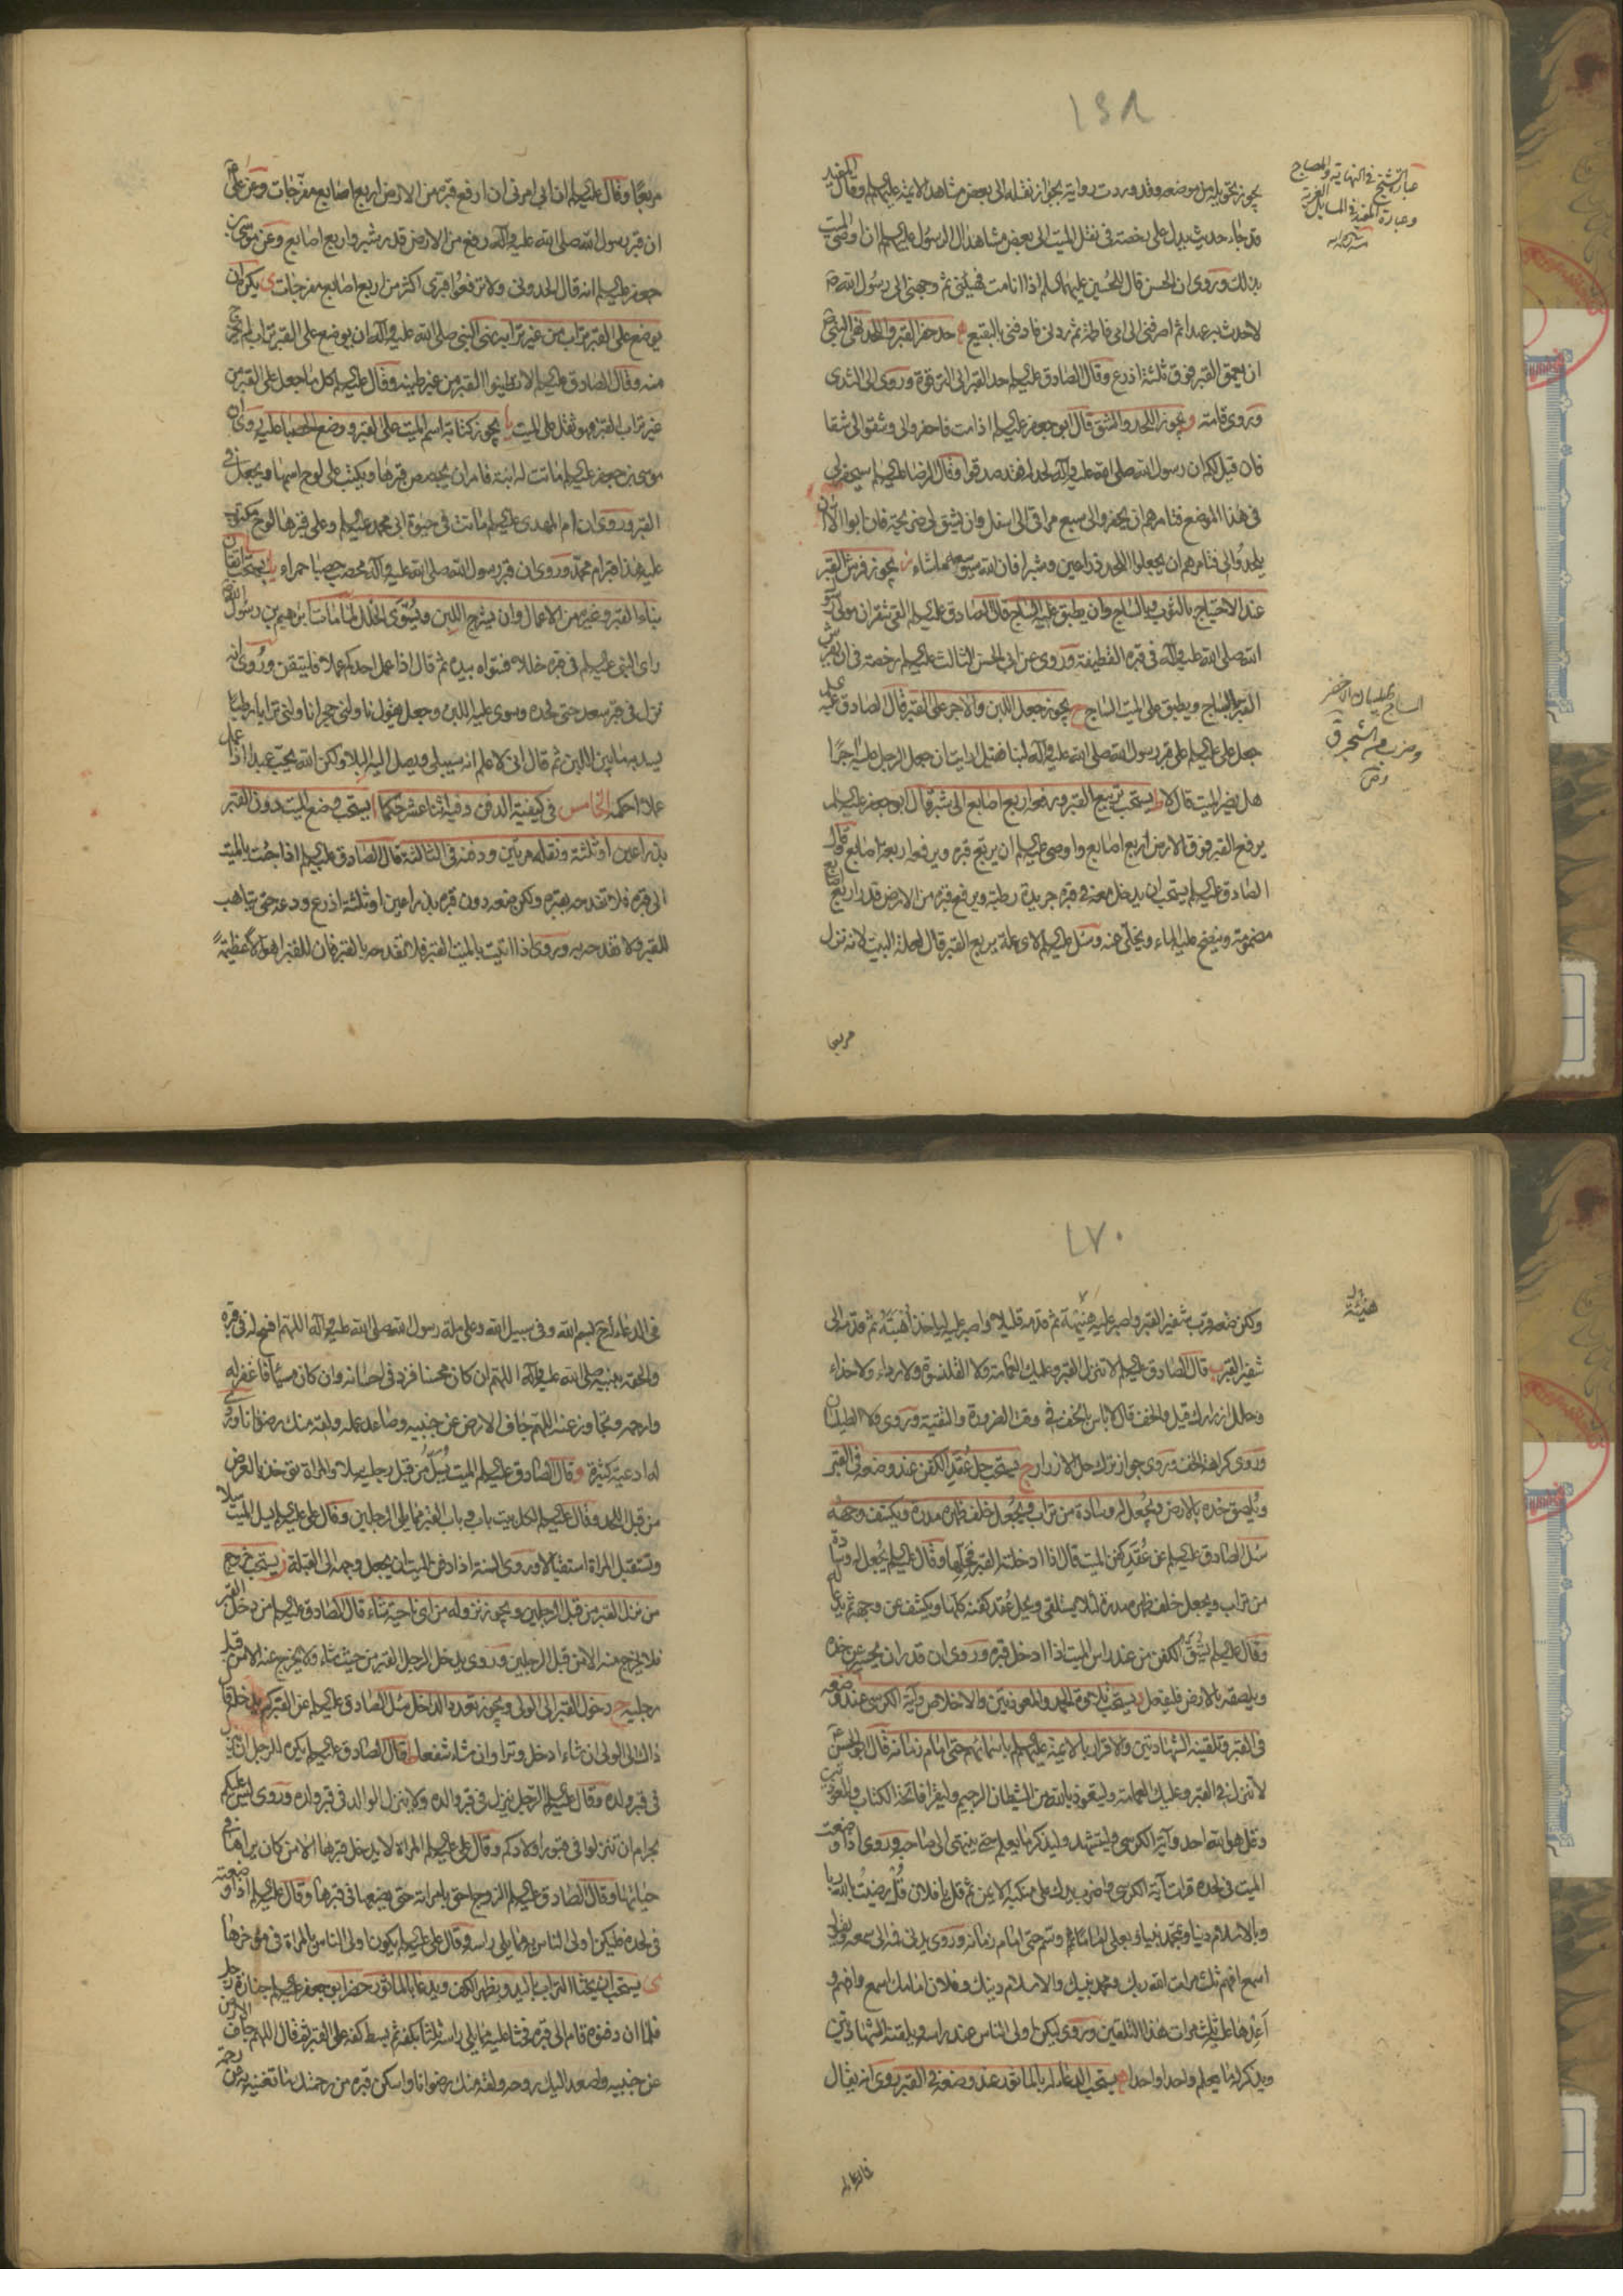 ١٦٨
يجوز تحويله من موضعه وقد وردت رواية بجواز نقله الى بعض مشاهد الائمة عليهم وقال المفيد
قد جاء حديث يدل على رخصة فى نقل الميت الى بعض مشاهد ال الرسول عليهم ان وصى الميت
بذلك وروى ان الحسن قال للحسين عليهما السلم اذا انا مت فهيئنى ثم وجهنى الى رسول الله ص
لاحدث به عهدا ثم اصرفنى الى امى فاطمة ثم ردنى فادفنى بالبقيع حد حفر القبر واللحد نهى النبى ص
ان يعمق القبر فوق ثلثة اذرع وقال الصادق عليه السلم حد القبر الى الترقوة وروى الى الثدى
وروى قامة و يجوز اللحد والشق قال ابو جعفر عليه السلم اذا مت فاحفروا لى وشقوا لى شقا
فان قيل لكم ان رسول الله صلى الله عليه وآله لحد له فقد صدقوا وقال الرضا عليه السلم سيحفر لى
فى هذا الموضع فتامرهم ان يحفروا لى سبع مراقى الى اسفل وان يشق لى ضريحة فان ابوا الا ان
يلحدوا لى فتامرهم ان يجعلوا اللحد ذراعين وشبرا فان الله سيوسعه ما شاء ز يجوز فرش القبر
عند الاحتياج بالثوب وبالساج وان يطبق عليه الساج قال الصادق عليه السلم القى شقران مولى رسول
الله صلى الله عليه وآله فى قبره القطيفة وروى عن ابى الحسن الثالث عليه السلم رخصة فى ان يفرش
القبر بالساج ويطبق على الميت الساج ح يجوز جعل اللبن والاجر على القبر قال الصادق عليه
جعل على عليه السلم على قبر رسول الله صلى الله عليه وآله لبنا فقيل ارايت ان جعل الرجل عليه اجرا
هل يضر الميت قال لا ط يستحب تربيع القبر ورفعه اربع اصابع الى شبر قال ابو جعفر عليه السلم
يرفع القبر فوق الارض اربع اصابع واوصى عليه السلم ان يربع قبره ويرفعه اربعة اصابع وقال
الصادق عليه السلم يستحب ان يدخل معه فى قبره جريدة رطبة ويرفع قبره من الارض قدر اربع اصابع
مضمومة وينضح عليه الماء ويخلى عنه وسئل عليه السلم لاى علة يربع القبر قال لعلة البيت لانه نزل
مربعا
عبارة الشيخ فى النهاية والمصباح
وعبارة المفيد فى المسايل الغرية
الساج الطيلسان الاخضر
وضرب من الشجر ق
مربعا وقال عليه السلم ان ابى امرنى ان ارفع قبره من الارض اربع اصابع مفرجات وعن على ع
ان قبر رسول الله صلى الله عليه وآله رفع من الارض قدر شبر واربع اصابع وعن موسى بن
جعفر عليه السلم انه قال الحدونى ولا ترفعوا قبرى اكثر من اربع اصابع مفرجات ى يكره ان
يوضع على القبر تراب من غير ترابه نهى النبى صلى الله عليه وآله ان يوضع على القبر تراب لم يخرج
منه وقال الصادق عليه السلم لا تطينوا القبر من غير طينه وقال عليه السلم كل ما جعل على القبر من
غير تراب القبر فهو ثقل على الميت يا يجوز كتابة اسم الميت على القبر ووضع الحصبا عليه روى ان
موسى بن جعفر عليه السلم ماتت له ابنة فامر ان يجصص قبرها ويكتب على لوح اسمها ويجعل فى
القبر وروى ان ام المهدى عليه السلم ماتت فى حيوة ابى محمد عليه السلم وعلى قبرها لوح مكتوب
عليه هذا قبر ام محمد وروى ان قبر رسول الله صلى الله عليه وآله محصب حصبا حمراء يب يستحب اتقان
بناء القبر وغيره من الاعمال وان يشرج اللبن ويسوى الخلل لما مات ابرهيم بن رسول الله
راى النبى عليه السلم فى قبره خللا فسواه بيده ثم قال اذا عمل احدكم عملا فليتقن وروى انه
نزل فى قبر سعد حتى لحده وسوى عليه اللبن وجعل يقول ناولنى حجرا ناولنى ترابا رطبا
يسد به ما بين اللبن ثم قال انى لاعلم انه سيبلى ويصل اليه البلا ولكن الله يحب عبدا اذا عمل
عملا احكمه الخامس فى كيفية الدفن وفيه اثنا عشر حكما ا يستحب وضع الميت دون القبر
بذراعين او ثلثة ونقله مرتين ودفنه فى الثالثة قال الصادق عليه السلم اذا جئت بالميت
الى قبره فلا تفدحه بقبره ولكن ضعه دون قبره بذراعين او ثلثة اذرع ودعه حتى يتاهب
للقبر ولا تفدحه به وروى اذا اتيت بالميت القبر فلا تفدحه بالقبر فان للقبر اهوالا عظيمة
١٧٠
ولكن ضعه قرب شفير القبر واصبر عليه هنيهة ثم قدمه قليلا واصبر عليه لياخذ اهبته ثم قدمه الى
شفير القبر ب قال الصادق عليه السلم لا تنزل القبر وعليك العمامة ولا القلنسوة ولا رداء ولا حذاء
وحلل ازرارك قيل والخف قال لا باس بالخف فى وقت الضرورة والتقية وروى ولا الطيلسان
وروى كراهة الخف وروى جواز ترك حل الازرار ج يستحب حل عقد الكفن عند وضعه فى القبر
ويلصق خده بالارض ويجعل له وسادة من تراب ويجعل خلف ظهره مدرة ويكشف وجهه
سئل الصادق عليه السلم عن عقد كفن الميت قال اذا ادخلته القبر فحلها وقال عليه السلم يجعل له وسادة
من تراب ويجعل خلف ظهره مدرة لئلا يستلقى ويحل عقد كفنه كلها ويكشف عن وجهه ثم يدعا له
وقال عليه السلم يشق الكفن من عند راس الميت اذا ادخل قبره وروى ان قدر ان يحسر عن خده
ويلصقه بالارض فليفعل د يستحب تلاوة الحمد والمعوذتين والاخلاص وآية الكرسى عند وضعه
فى القبر وتلقينه الشهادتين والاقرار بالائمة عليهم باسمائهم حتى امام زمانه قال ابو الحسن
لا تنزل فى القبر وعليك العمامة وليتعوذ بالله من الشيطان الرجيم وليقرا فاتحة الكتاب والمعوذتين
وقل هو الله احد وآية الكرسى وليتشهد وليذكر ما يعلم حتى ينتهى الى صاحبه وروى اذا وضعت
الميت فى لحده قرات آية الكرسى واضرب يدك على منكبه الايمن ثم قل يا فلان قل رضيت بالله ربا
وبالاسلام دينا وبمحمد نبيا وبعلى اماما وتسم حتى امام زمانه وروى يدنى فمه الى سمعه ويقول
اسمع افهم ثلث مرات الله ربك ومحمد نبيك والاسلام دينك وفلان امامك اسمع وافهم و
اعدها عليه ثلث مرات هذا التلقين وروى ليكن اولى الناس عند راسه ويلقنه الشهادتين
ويذكر له ما يعلم واحدا واحدا ه يستحب الدعاء له بالماثور عند وضعه فى القبر روى انه يقال
هنيئة
فى الدعاء له بسم الله وفى سبيل الله وعلى ملة رسول الله صلى الله عليه وآله اللهم افسح له فى قبره
والحقه بنبيه صلى الله عليه وآله اللهم ان كان محسنا فزد فى احسانه وان كان مسيئا فاغفر له
وارحمه وتجاوز عنه اللهم جاف الارض عن جنبيه وصاعد عمله ولقه منك رضوانا وروى
له ادعية كثيرة و قال الصادق عليه السلم الميت يسل من قبل رجليه سلا والمراة توخذ بالعرض
من قبل اللحد وقال عليه السلم لكل بيت باب وباب القبر مما يلى الرجلين وقال على عليه السلم يسل الميت سلا
وتستقبل المراة استقبالا وروى السنة اذا دفن الميت ان يجعل وجهه الى القبلة ز يستحب خروج
من نزل القبر من قبل الرجلين ويجوز نزوله من اى ناحية شاء قال الصادق عليه السلم من دخل القبر
فلا يخرج منه الا من قبل الرجلين وروى يدخل الرجل القبر من حيث شاء ولا يخرج منه الا من قبل
رجليه ح دخول القبر الى الولى ويجوز تعدد الداخل سئل الصادق عليه السلم عن القبر كم يدخله قال
ذاك الى الولى ان شاء ادخل وترا وان شاء شفعا ط قال الصادق عليه السلم يكره للرجل ان ينزل
فى قبر ولده وقال عليه السلم الرجل ينزل فى قبر والده ولا ينزل الوالد فى قبر ولده وروى ليس عليكم
بحرام ان تنزلوا فى قبور اولادكم وقال على عليه السلم المراة لا يدخل قبرها الا من كان يراها فى
حياتها وقال الصادق عليه السلم الزوج احق بامراته حتى يضعها فى قبرها وقال عليه السلم اذا وضعته
فى لحده فليكن اولى الناس به مما يلى راسه وقال على عليه السلم يكون اولى الناس بالمراة فى مؤخرها
ى يستحب ان يحثا التراب باليد وبظهر الكف ويدعا بالماثور حضر ابو جعفر عليه السلم جنازة رجل
فلما ان دفنوه قام الى قبره فحثا عليه مما يلى راسه ثلثا بكفه ثم بسط كفه على القبر ثم قال اللهم جاف الارض
عن جنبيه واصعد اليك روحه ولقه منك رضوانا واسكن قبره من رحمتك ما تغنيه به عن رحمة